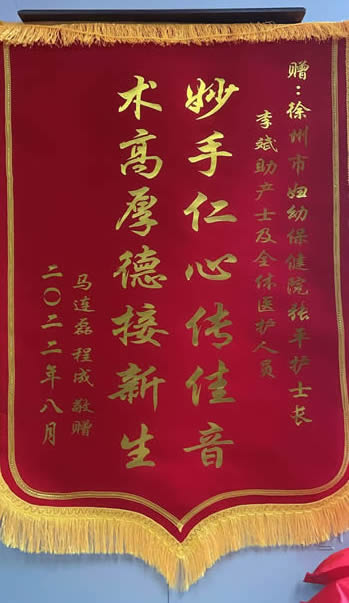 赠：徐州市妇幼保健院张平护士长
李斌助产士及全体医护人员
妙手仁心传佳音
术高厚德接新生
马连磊 程成 敬赠
二〇二二年八月